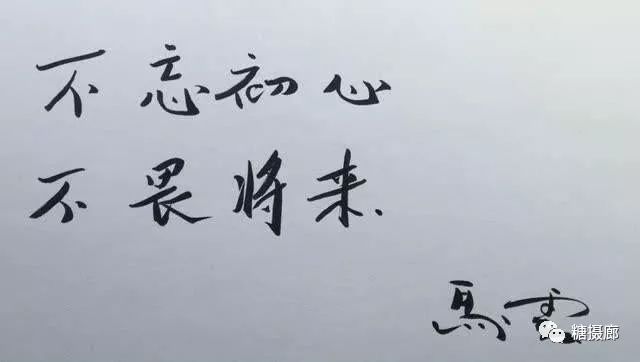 不忘初心
不畏将来.
馬雲
糖摄廊